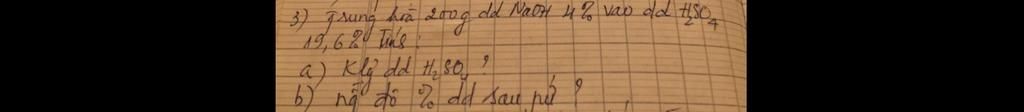 3) Trung hoà 200g dd NaOH 4% vào dd H2SO4
19,6% Tính :
a) Klg dd H2SO4 ?
b) ng độ % dd sau pứ ?